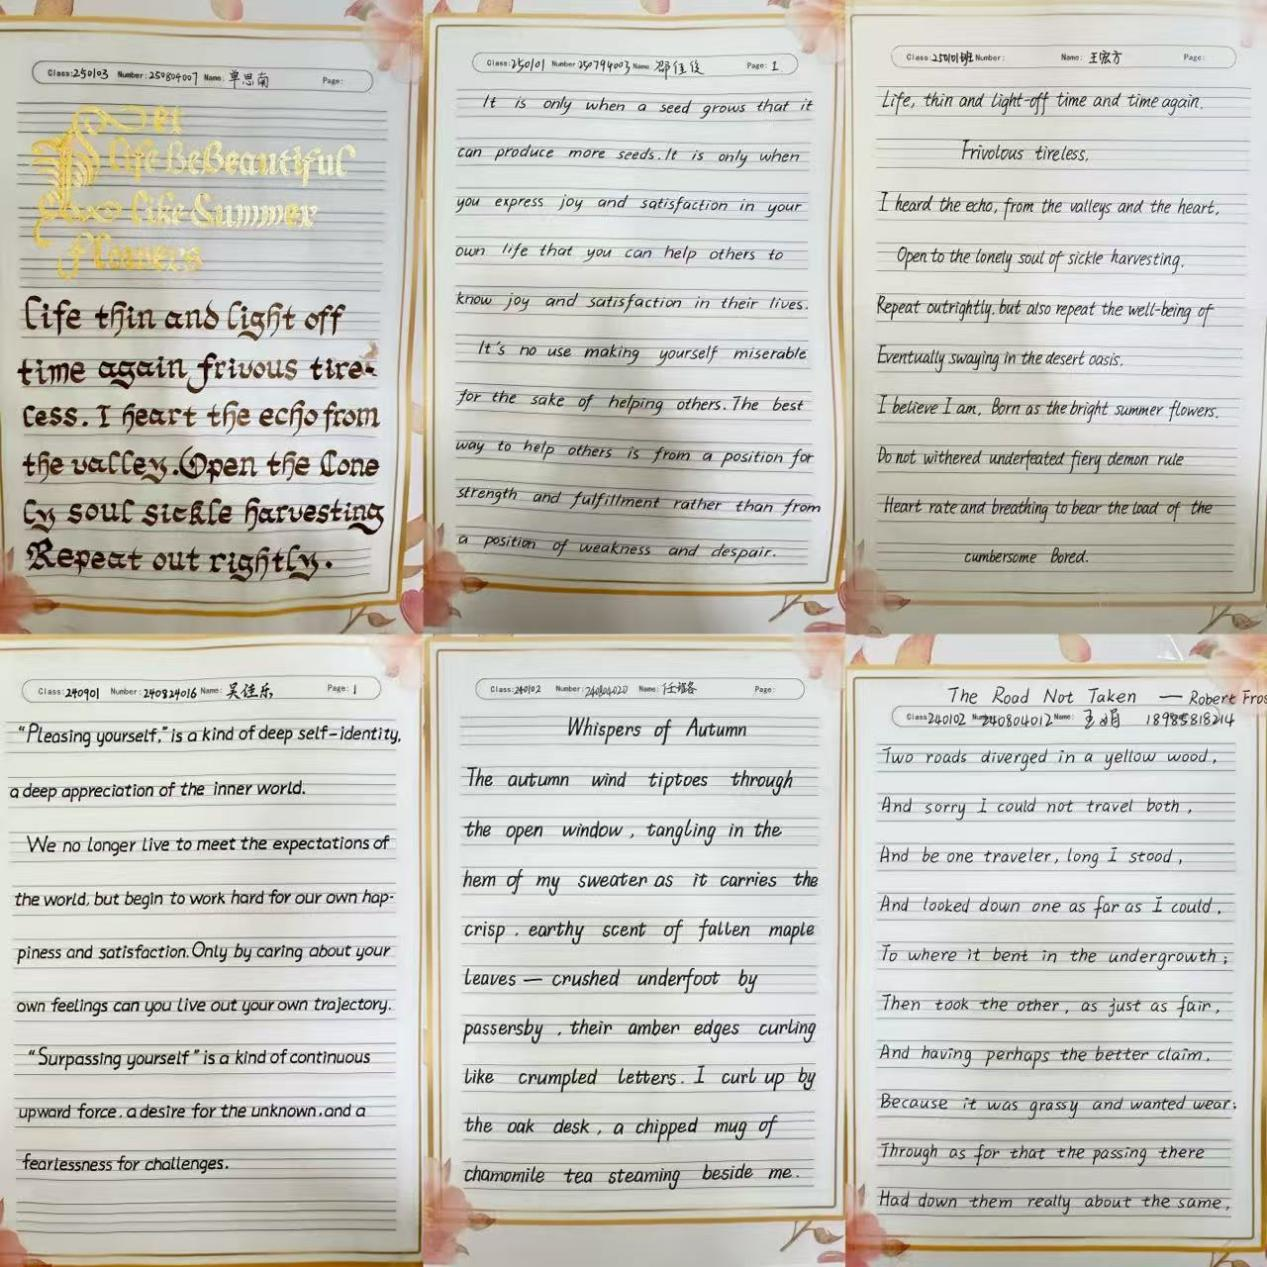 Class: 250103 Number: 250804007 Name: 单思南 Page:
Let
life Be Beautiful
like Summer
Flowers
Life thin and light off
time again frivous tire-
less. I heart the echo from
the valley. Open the Lone
ly soul sickle harvesting
Repeat out rightly.
Class: 250101 Number: 250794003 Name: 邵佳俊 Page: 1
It is only when a seed grows that it
can produce more seeds. It is only when
you express joy and satisfaction in your
own life that you can help others to
know joy and satisfaction in their lives.
It's no use making yourself miserable
for the sake of helping others. The best
way to help others is from a position for
strength and fulfillment rather than from
a position of weakness and despair.
Class: 250101班 Number: Name: 王宏方 Page:
Life, thin and light-off time and time again.
Frivolous tireless.
I heard the echo, from the valleys and the heart,
Open to the lonely soul of sickle harvesting.
Repeat outrightly, but also repeat the well-being of
Eventually swaying in the desert oasis.
I believe I am, Born as the bright summer flowers.
Do not withered underfeated fiery demon rule
Heart rate and breathing to bear the load of the
cumbersome Bored.
Class: 240901 Number: 240824016 Name: 吴佳乐 Page: 1
"Pleasing yourself," is a kind of deep self-identity,
a deep appreciation of the inner world.
We no longer live to meet the expectations of
the world, but begin to work hard for our own hap-
piness and satisfaction. Only by caring about your
own feelings can you live out your own trajectory.
"Surpassing yourself" is a kind of continuous
upward force, a desire for the unknown, and a
fearlessness for challenges.
Class: 240102 Number: 240804020 Name: Page:
Whispers of Autumn
The autumn wind tiptoes through
the open window, tangling in the
hem of my sweater as it carries the
crisp, earthy scent of fallen maple
leaves — crushed underfoot by
passersby, their amber edges curling
like crumpled letters. I curl up by
the oak desk, a chipped mug of
chamomile tea steaming beside me.
The Road Not Taken — Robert Fros
Class: 240102 Number: 240804012 Name: 18985818214
Two roads diverged in a yellow wood,
And sorry I could not travel both,
And be one traveler, long I stood,
And looked down one as far as I could,
To where it bent in the undergrowth;
Then took the other, as just as fair,
And having perhaps the better claim.
Because it was grassy and wanted wear;
Through as for that the passing there
Had down them really about the same,